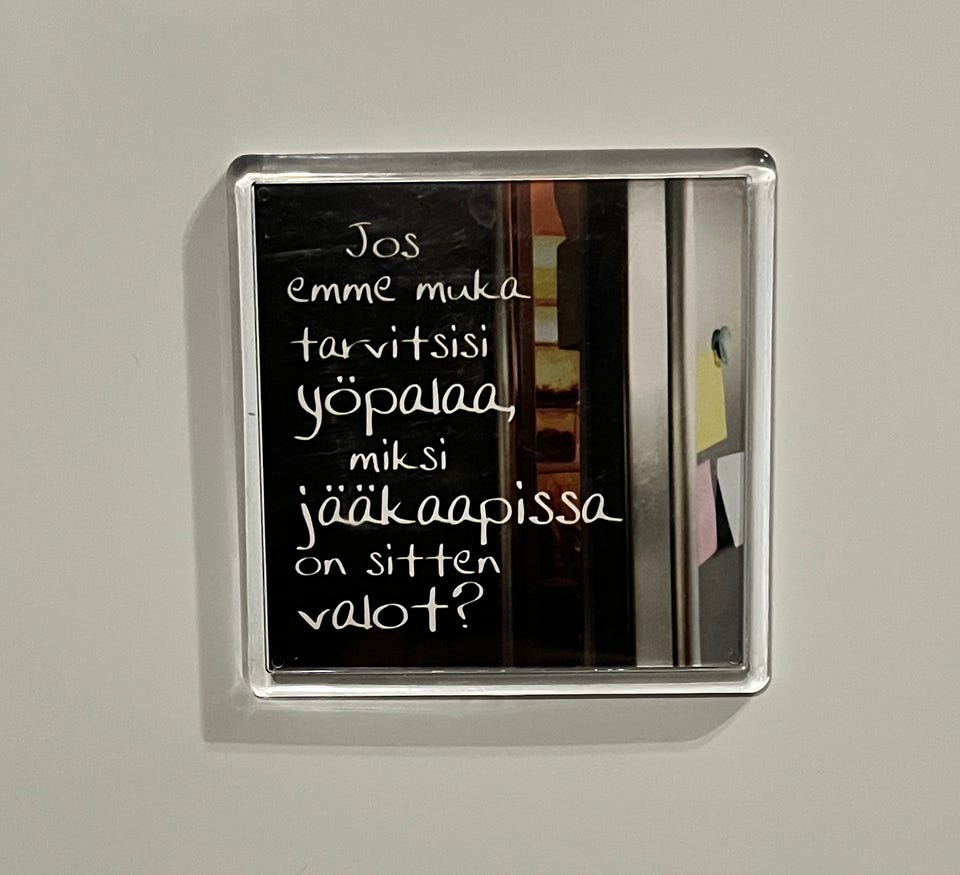 Jos
emme muka
tarvitsisi
yöpalaa,
miksi
jääkaapissa
on sitten
valot?